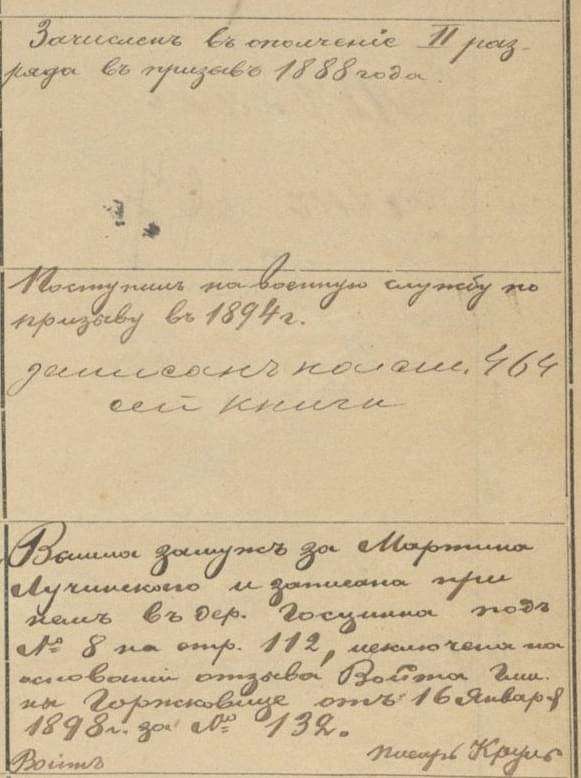 Зачисленъ въ ополченіе II раз-
ряда въ призывъ 1888 года.
Поступилъ на военную службу по
призыву въ 1894 г.
записанъ на стр. 464
сей книги
Вышла замужъ за Мартина
Лучинского и записана при
немъ въ дер. Госцинна подъ
№ 8 на стр. 112, исключена на
основаніи отзыва Войта Гми-
ны Горжковице отъ 16 Января
1898 г. за № 132.
Войтъ писарь Круль